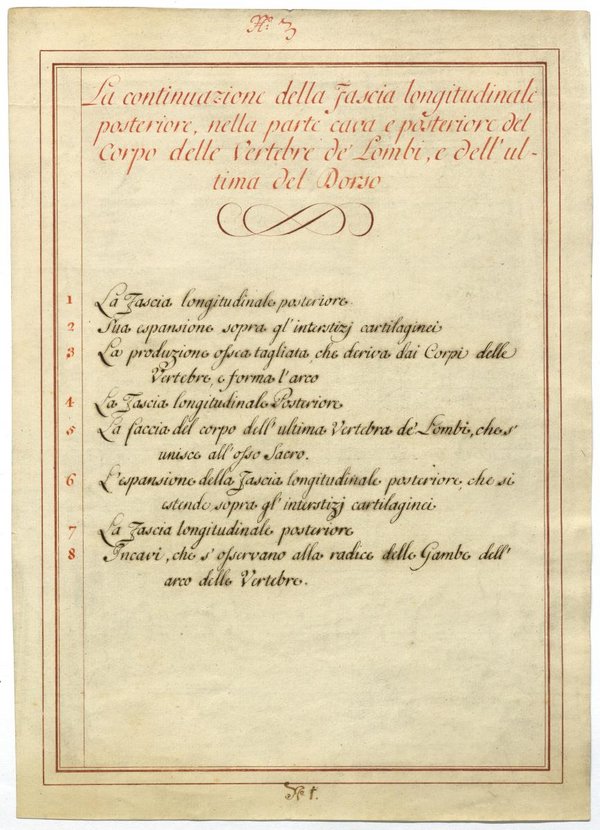 N.º 3
La continuazione della Fascia longitudinale
posteriore, nella parte cava e posteriore del
Corpo delle Vertebre de' Lombi, e dell' ul-
tima del Dorso
1 La Fascia longitudinale posteriore.
2 Sua espansione sopra gl' interstizj cartilaginei
3 La produzione ossea tagliata, che deriva dai Corpi delle
Vertebre, e forma l'arco
4 La Fascia longitudinale Posteriore
5 La faccia del corpo dell' ultima Vertebra de' Lombi, che s'
unisce all' osso Sacro.
6 L'espansione della Fascia longitudinale posteriore, che si
estende sopra gl' interstizj cartilaginei
7 La Fascia longitudinale posteriore
8 Incavi, che s' osservano alla radice delle Gambe dell'
arco delle Vertebre.